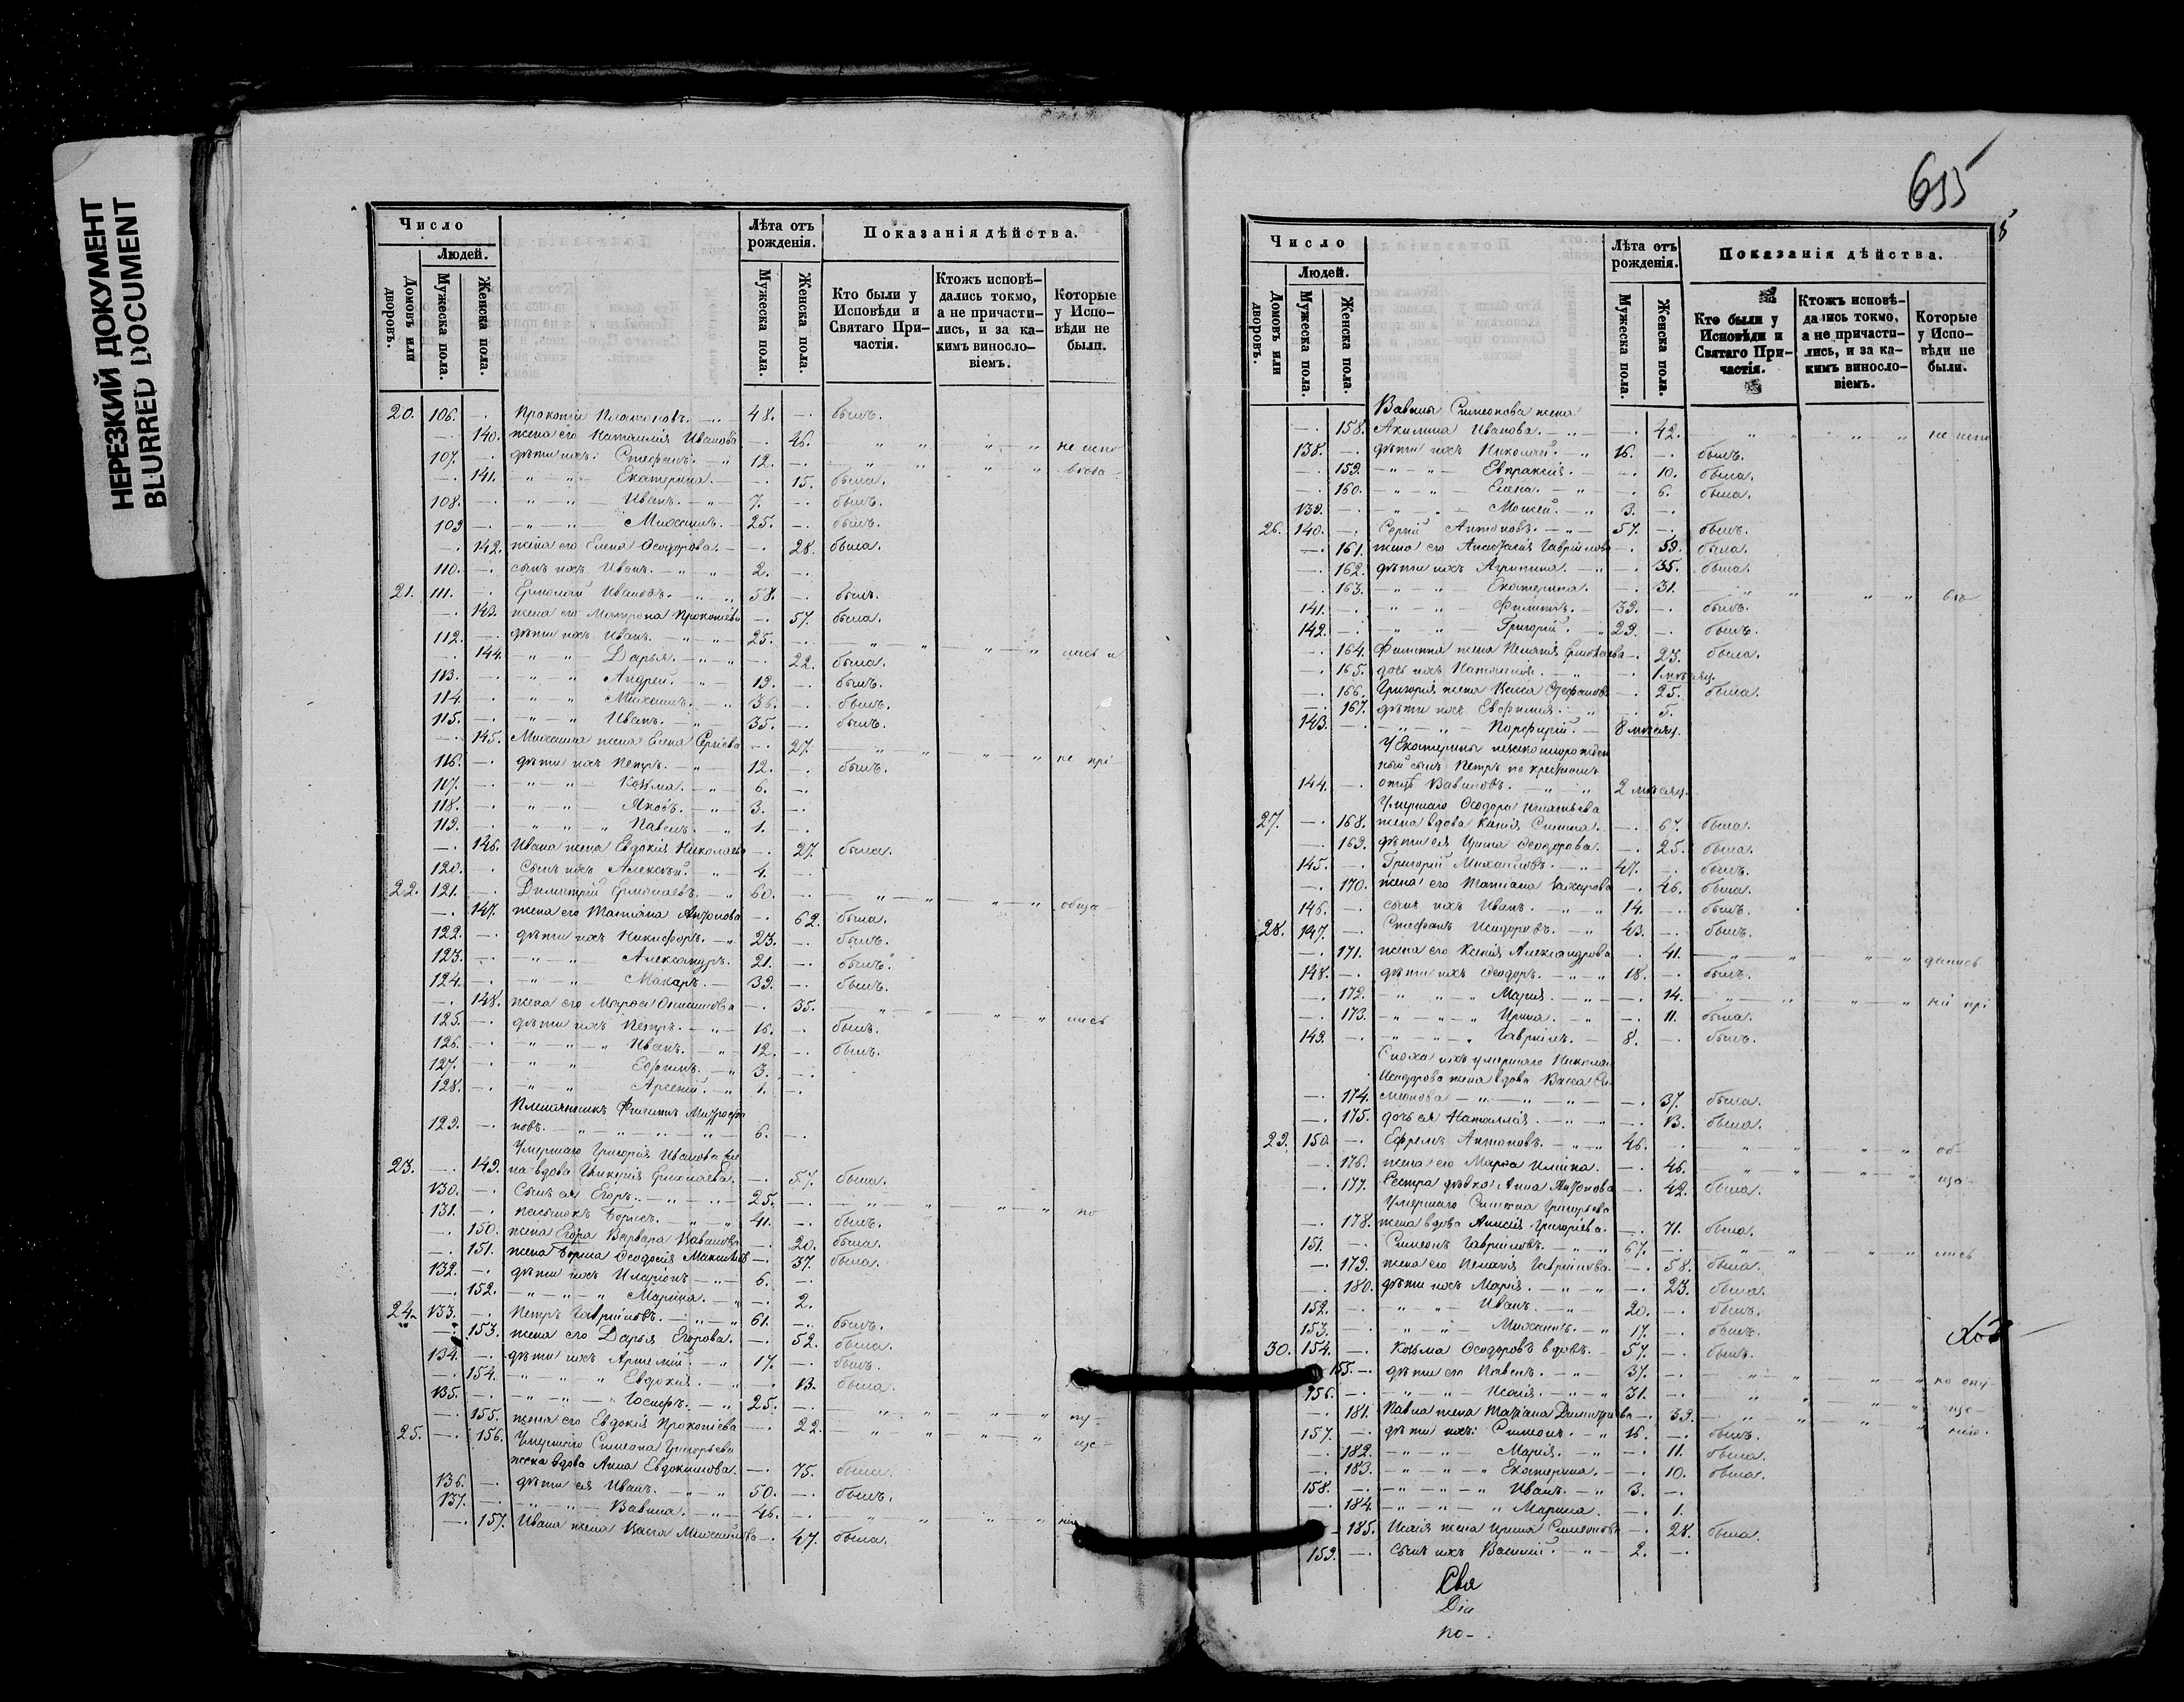 НЕРЕЗКИЙ ДОКУМЕНТ
BLURRED DOCUMENT
Число
Людей.
Домовъ или дворовъ.
Мужеска пола.
Женска пола.
Лѣта отъ рожденія.
Мужеска пола.
Женска пола.
Показанія дѣйства.
Кто были у Исповѣди и Святаго Причастія.
Ктожъ исповѣдались токмо, а не причастились, и за какимъ винословіемъ.
Которые у Исповѣди не были.
20. 106. —. Прокопій Платоновъ. 48. —. былъ.
—. 140. жена его Наталлія Иванова —. 46. не испо
107. —. дѣти ихъ: Стефанъ. 12. —.
—. 141. Екатерина. —. 15. была.
108. —. Иванъ. 7. —. былъ.
109 —. Михаилъ. 25. —. былъ.
—. 142. жена его Елена Ѳеодорова. —. 28. была.
110. —. сынъ ихъ Иванъ. 2. —.
21. 111. —. Ермолай Ивановъ. 58. —. былъ.
—. 143. жена его Матрона Прокопіева —. 57. была.
112. —. дѣти ихъ Иванъ. 25. —.
—. 144. Дарья. —. 22. была.
113. —. Андрей. 19. —. былъ.
114. —. Михаилъ. 36. —. былъ.
115. —. Иванъ. 35. —. былъ.
—. 145. Михаила жена Елена Сергіева —. 27. не прі
116. —. дѣти ихъ Петръ. 12. —. былъ.
117. —. Козма. 6. —.
118. —. Яковъ. 3. —.
119. —. Павелъ. 1. —.
—. 146. Ивана жена Евдокія Николаева —. 27. была.
120. —. Сынъ ихъ Алексѣй. 4. —.
22. 121. —. Димитрій Ермолаевъ. 60. —. обща
—. 147. жена его Матіяна Антонова —. 62. была.
122. —. дѣти ихъ Никифоръ. 23. —. былъ.
123. —. Александръ. 21. —. былъ.
124. —. Макаръ. 39. —. былъ.
—. 148. жена его —. 35. лись
125. —. дѣти ихъ Петръ. 16. —. былъ.
126. —. Иванъ. 12. —. былъ.
127. —. Ефимъ. 3. —.
128. —. Арсеній. 1. —.
Племянникъ Филиппъ Митрофа
129. —. новъ. 6. —.
Умершаго Григорія Иванова же
23. —. 149. на вдова Гликерія Ермолаева. —. 57. была.
130. —. Сынъ ея Егоръ. 25. —. по
131. —. пасынокъ Борисъ. 41. —. былъ.
—. 150. жена Егора Варвара Вавилова —. 20. была.
—. 151. жена Бориса Ѳеодосія —. 37. была.
132. —. дѣти ихъ Иларіонъ 6. —.
—. 152. Марина. —. 2.
24. 133. —. Петръ Гавріиловъ. 61. —. былъ.
—. 153. жена его Дарья Егорова. —. 52. была.
134. —. дѣти ихъ Артемій. 17. —. былъ.
—. 154. Евдокія. —. 13. была.
135. —. Іосифъ. 25. —.
—. 155. жена его Евдокія Прокопіева —. 22.
25. —. 156. Умершаго Симеона Григорьева
жена вдова Анна Евдокимова. —. 75. была.
136. —. дѣти ея Иванъ. 50. —. былъ.
137. —. Вавила. 46. —.
—. 157. Ивана жена Васса Михайлова —. 47. была.
655
Число
Людей.
Домовъ или дворовъ.
Мужеска пола.
Женска пола.
Лѣта отъ рожденія.
Мужеска пола.
Женска пола.
Показанія дѣйства.
Кто были у Исповѣди и Святаго Причастія.
Ктожъ исповѣдались токмо, а не причастились, и за какимъ винословіемъ.
Которые у Исповѣди не были.
Вавилы Симеонова жена
—. 158. Акилина Иванова. —. 42. не испо
138. —. дѣти ихъ Николай. 16. —. былъ.
—. 159. Евпраксія. —. 10. была.
—. 160. Елена. —. 6. была.
139. —. Моисей. 3. —.
26. 140. —. Сергій Антоновъ. 57. —. былъ.
—. 161. жена его Анастасія Гавріилова —. 59. была.
—. 162. дѣти ихъ Агрипина. —. 35. была.
—. 163. Екатерина. —. 31.
141. —. Филиппъ. 39. —. былъ.
142. —. Григорій. 29. —. былъ.
—. 164. Филиппа жена Пелагія Ермолаева —. 23. была.
—. 165. дочь ихъ Наталлія. —. 1 мѣсяц.
—. 166. Григорія жена Васса Стефанова —. 25. была.
—. 167. дѣти ихъ Евфимія. —. 5.
143. —. Порфирій. 8 мѣсяц.
У Екатерины незаконнорожден
ный сынъ Петръ по крестномъ
144. —. отцѣ Вавиловъ. 2 мѣсяц.
Умершаго Ѳеодора Игнатьева
27. —. 168. жена вдова Ксенія —. 67. была.
—. 169. дѣти ея Ирина Ѳеодорова. —. 25. была.
145. —. Григорій Михайловъ. 47. —. былъ.
—. 170. жена его Матіана Макарова —. 46. была.
146. —. сынъ ихъ Иванъ. 14. —. былъ.
28. 147. —. Стефанъ Исидоровъ. 43. —. былъ.
—. 171. жена его Ксенія Александрова —. 41. дались
148. —. дѣти ихъ Ѳеодоръ. 18. —. былъ.
—. 172. Марія. —. 14.
—. 173. Ирина. —. 11. была.
149. —. Гавріилъ. 8. —. былъ.
Сноха ихъ умершаго Николая
Исидорова жена вдова Васса Си
—. 174. меонова —. 37. была.
—. 175. дочь ея Наталлія. —. 13. была.
29. 150 —. Ефремъ Антоновъ. 46. —. об-
—. 176. жена его Марѳа Ильина. —. 46. ща-
—. 177. Сестра дѣвка Анна Антонова —. 42. была.
Умершаго Григорьева
—. 178. жена вдова Анисія Григоріева. —. 71. была.
151. —. Симеонъ Гавріиловъ. 67. —. лись
—. 179. жена его Пелагія Гавріилова. —. 58. была.
—. 180. дѣти ихъ Марія. —. 23. была.
152. —. Иванъ. 20. —. былъ.
153. —. Михаилъ. 17. —. былъ.
30. 154. —. Козма Ѳеодоровъ вдовъ. 57. —. былъ.
155. —. дѣти его Павелъ. 37. —. по опу-
156. —. Исаія. 31. —. ще-
—. 181. Павла жена Матіана Димитріева —. 39. нію.
157. —. дѣти ихъ: Симеонъ. 16. —. былъ.
—. 182. Марія. —. 11. была.
—. 183. Екатерина. —. 10. была.
158. —. Иванъ. 3. —.
—. 184. Марина. —. 1.
—. 185. Исаія жена Ирина Симеонова —. 28. была.
159. —. сынъ ихъ Василій. 2. —.
Сва
Діа
по-